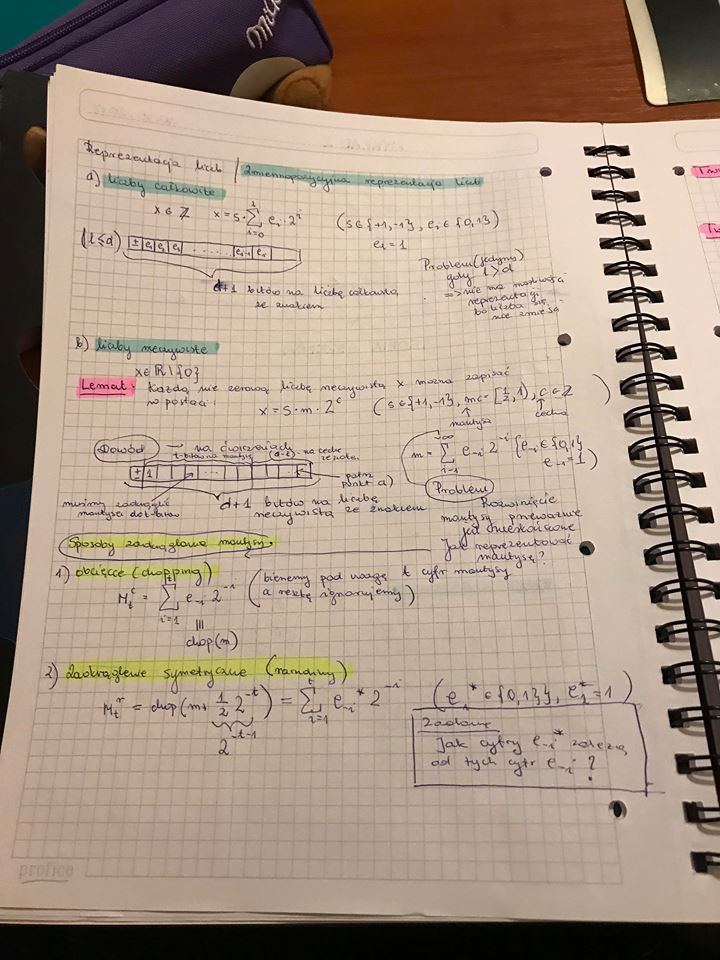 Milk
Reprezentacja liczb / Zmiennopozycyjna reprezentacja liczb
a) liczby całkowite
x ∈ ℤ x = s·∑_{i=0}^{l} e_i·2^i (s∈{+1,-1}, e_i ∈ {0,1})
e_l = 1
(l≤d) ± e_l
Problem (jedyny)
gdy l>d
d+1 bitów na liczbę całkowitą
ze znakiem
=> nie ma możliwości
reprezentacji
bo liczba się
nie zmieści
b) liczby rzeczywiste
x∈ℝ\{0}
Lemat: Każdą nie zerową liczbę rzeczywistą x można zapisać
w postaci: x = s·m·2^c (s∈{+1,-1}, m∈[1/2,1), c∈ℤ)
mantysa cecha
Dowód → na ćwiczeniach
t-bitów na mantysę (d-t)-na cechę
m = ∑_{i=1}^{∞} e_{-i} 2^{-i} {e_{-i}∈{0,1} e_{-1}=1)
± 1
patrz
punkt a)
Problem
musimy zaokrąglić
mantysę do t-bitów
d+1 bitów na liczbę
rzeczywistą ze znakiem
Rozwinięcie
mantysy przeważnie
jest nieskończone
Jak reprezentować
mantysę?
Sposoby zaokrąglania mantysy.
1) obcięcie (chopping)
M_t^c = ∑_{i=1}^{t} e_{-i} 2^{-i} (bierzemy pod uwagę t cyfr mantysy
a resztę ignorujemy)
≡
chop(m)
2) Zaokrąglenie symetryczne (normalny)
M_t^r = chop(m+ 1/2 2^{-t}) = ∑_{i=1}^{t} e_{-i}^* 2^{-i} (e_{-i}^* ∈{0,1}}, e_{-1}^*=1)
2^{-t-1}
Zadanie
Jak cyfry e_{-i}^* zależą
od tych cyfr e_{-i} ?
profice